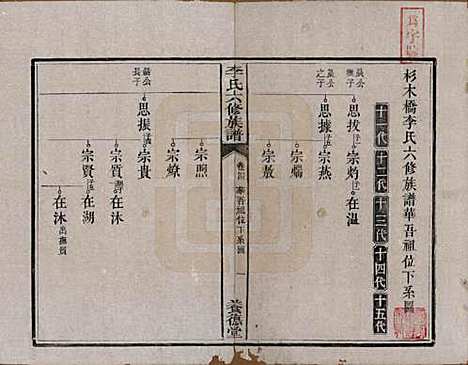 杉木橋李氏六修族譜華吾祖位下系圖
十一代 十二代 十三代 十四代 十五代
公撫子
思拔 宗灼 在溫
公之子
思據 宗燕
宗燏
宗敖
李氏六修族譜
卷四 華吾祖位下系圖 一
養德堂
宗照
宗燎
公長子
思振 宗貴
宗質 在沐
宗賢 在湖
在沐 出撫質